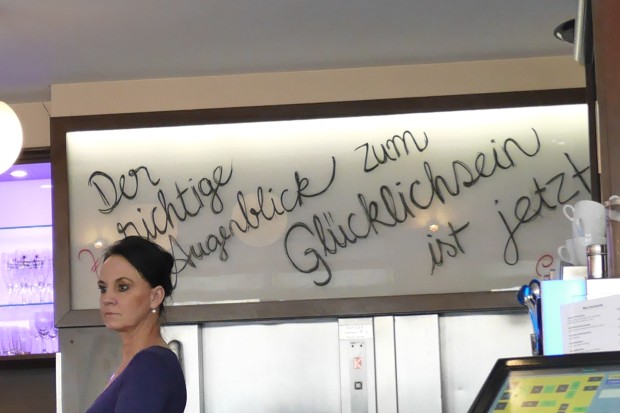 Der richtige
Augenblick zum
Glücklichsein
ist jetzt